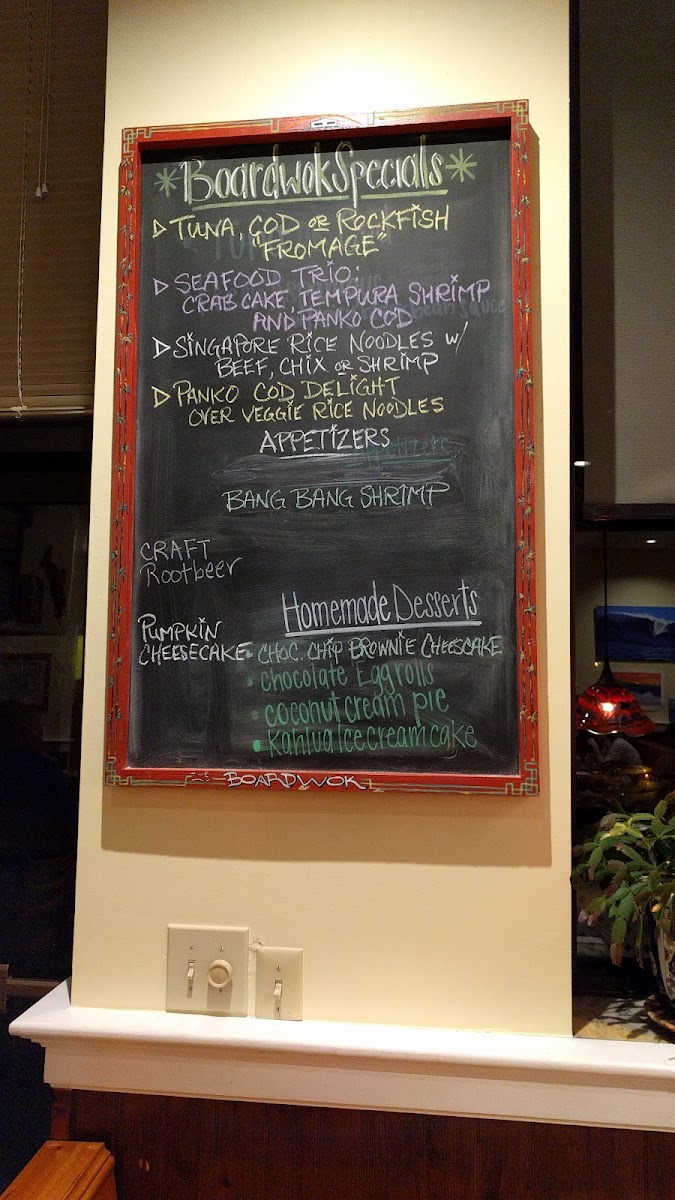 *BoardwokSpecials*
▷ TUNA, COD OR ROCKFISH
"FROMAGE"
▷ SEAFOOD TRIO:
CRAB CAKE, TEMPURA SHRIMP
AND PANKO COD
▷ SINGAPORE RICE NOODLES W/
BEEF, CHIX OR SHRIMP
▷ PANKO COD DELIGHT
OVER VEGGIE RICE NOODLES
APPETIZERS
Appetizers
BANG BANG SHRIMP
CRAFT
Rootbeer
Homemade Desserts
PUMPKIN
CHEESECAKE
• CHOC. CHIP BROWNIE CHEESCAKE
• chocolate Eggrolls
• coconut cream pie
• Kahlua Ice cream cake
THE BOARDWOK